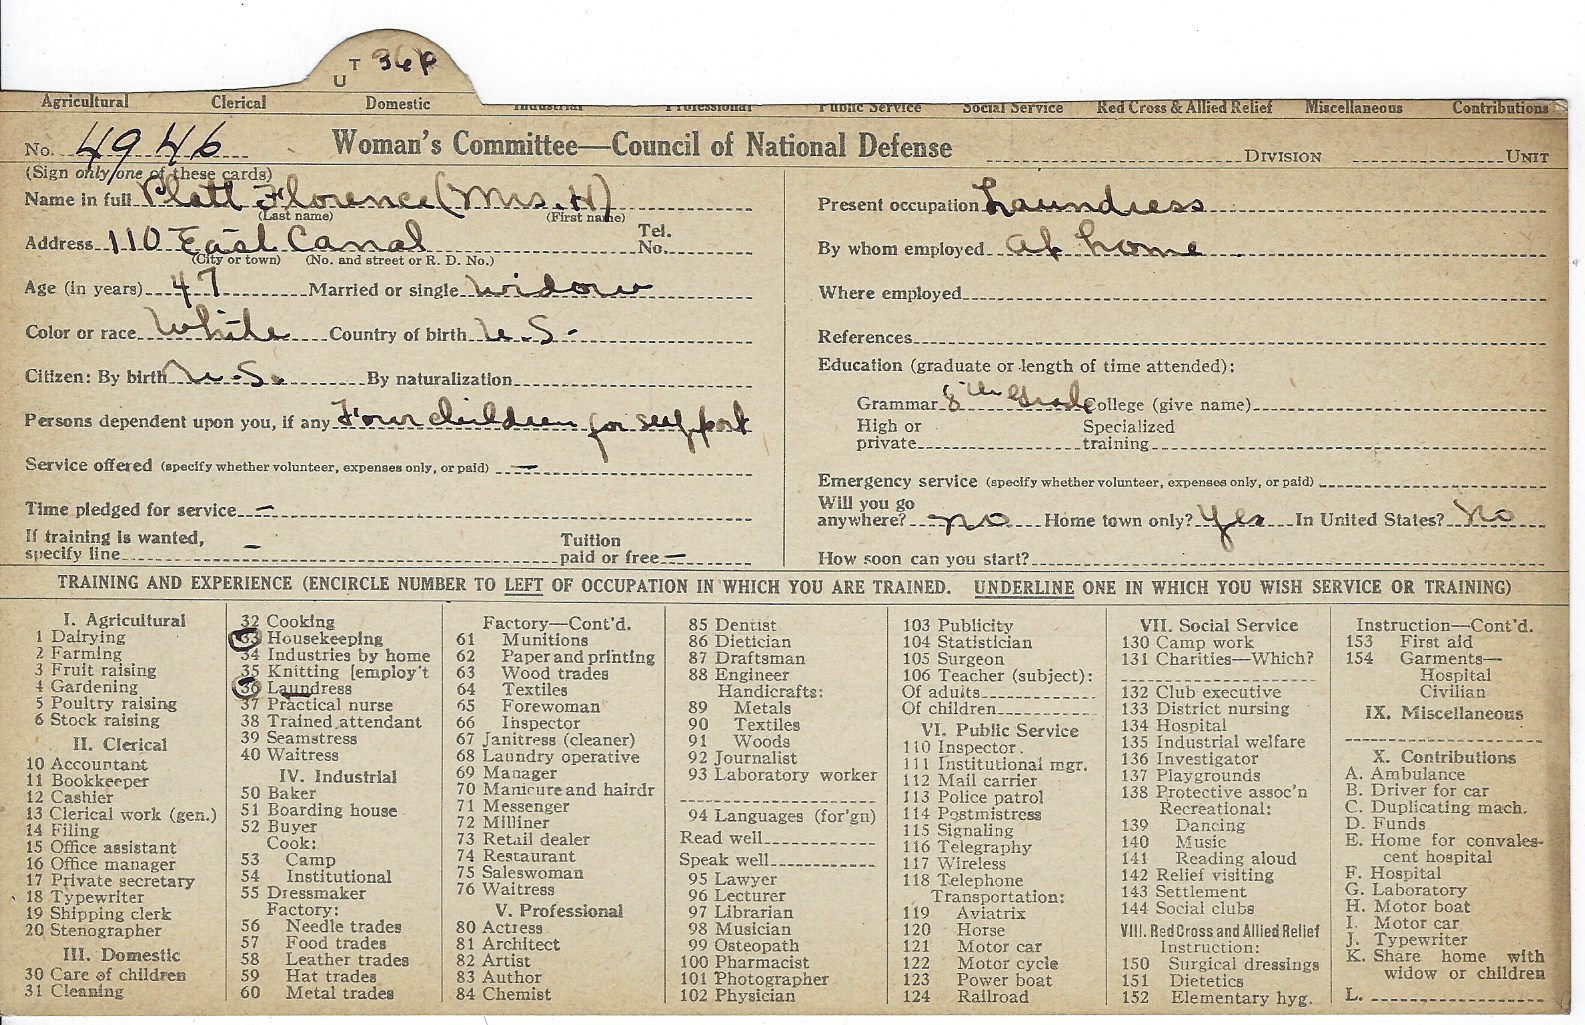 U T 36P
Agricultural Clerical Domestic Industrial Professional Public Service Social Service Red Cross & Allied Relief Miscellaneous Contributions
No. 4946 Woman's Committee—Council of National Defense DIVISION UNIT
(Sign only one of these cards)
Name in full Platt Florence (Mrs. H)
(Last name) (First name)
Address 110 East Canal Tel. No.
(City or town) (No. and street or R. D. No.)
Age (in years) 47 Married or single widow
Color or race White Country of birth U.S.
Citizen: By birth U.S. By naturalization
Persons dependent upon you, if any Four children for support
Service offered (specify whether volunteer, expenses only, or paid) —
Time pledged for service —
If training is wanted,
specify line — Tuition paid or free —
Present occupation Laundress
By whom employed at home
Where employed
References
Education (graduate or length of time attended):
Grammar 8th Grade College (give name)
High or private Specialized training
Emergency service (specify whether volunteer, expenses only, or paid)
Will you go
anywhere? no Home town only? Yes In United States? No
How soon can you start?
TRAINING AND EXPERIENCE (ENCIRCLE NUMBER TO LEFT OF OCCUPATION IN WHICH YOU ARE TRAINED. UNDERLINE ONE IN WHICH YOU WISH SERVICE OR TRAINING)
I. Agricultural
1 Dairying
2 Farming
3 Fruit raising
4 Gardening
5 Poultry raising
6 Stock raising
II. Clerical
10 Accountant
11 Bookkeeper
12 Cashier
13 Clerical work (gen.)
14 Filing
15 Office assistant
16 Office manager
17 Private secretary
18 Typewriter
19 Shipping clerk
20 Stenographer
III. Domestic
30 Care of children
31 Cleaning
32 Cooking
33 Housekeeping
34 Industries by home
35 Knitting [employ't
36 Laundress
37 Practical nurse
38 Trained attendant
39 Seamstress
40 Waitress
IV. Industrial
50 Baker
51 Boarding house
52 Buyer
Cook:
53 Camp
54 Institutional
55 Dressmaker
Factory:
56 Needle trades
57 Food trades
58 Leather trades
59 Hat trades
60 Metal trades
Factory—Cont'd.
61 Munitions
62 Paper and printing
63 Wood trades
64 Textiles
65 Forewoman
66 Inspector
67 Janitress (cleaner)
68 Laundry operative
69 Manager
70 Manicure and hairdr
71 Messenger
72 Milliner
73 Retail dealer
74 Restaurant
75 Saleswoman
76 Waitress
V. Professional
80 Actress
81 Architect
82 Artist
83 Author
84 Chemist
85 Dentist
86 Dietician
87 Draftsman
88 Engineer
Handicrafts:
89 Metals
90 Textiles
91 Woods
92 Journalist
93 Laboratory worker
94 Languages (for'gn)
Read well
Speak well
95 Lawyer
96 Lecturer
97 Librarian
98 Musician
99 Osteopath
100 Pharmacist
101 Photographer
102 Physician
103 Publicity
104 Statistician
105 Surgeon
106 Teacher (subject):
Of adults
Of children
VI. Public Service
110 Inspector.
111 Institutional mgr.
112 Mail carrier
113 Police patrol
114 Postmistress
115 Signaling
116 Telegraphy
117 Wireless
118 Telephone
Transportation:
119 Aviatrix
120 Horse
121 Motor car
122 Motor cycle
123 Power boat
124 Railroad
VII. Social Service
130 Camp work
131 Charities—Which?
132 Club executive
133 District nursing
134 Hospital
135 Industrial welfare
136 Investigator
137 Playgrounds
138 Protective assoc'n
Recreational:
139 Dancing
140 Music
141 Reading aloud
142 Relief visiting
143 Settlement
144 Social clubs
VIII. Red Cross and Allied Relief
Instruction:
150 Surgical dressings
151 Dietetics
152 Elementary hyg.
Instruction—Cont'd.
153 First aid
154 Garments—
Hospital
Civilian
IX. Miscellaneous
X. Contributions
A. Ambulance
B. Driver for car
C. Duplicating mach.
D. Funds
E. Home for convales-
cent hospital
F. Hospital
G. Laboratory
H. Motor boat
I. Motor car
J. Typewriter
K. Share home with
widow or children
L.